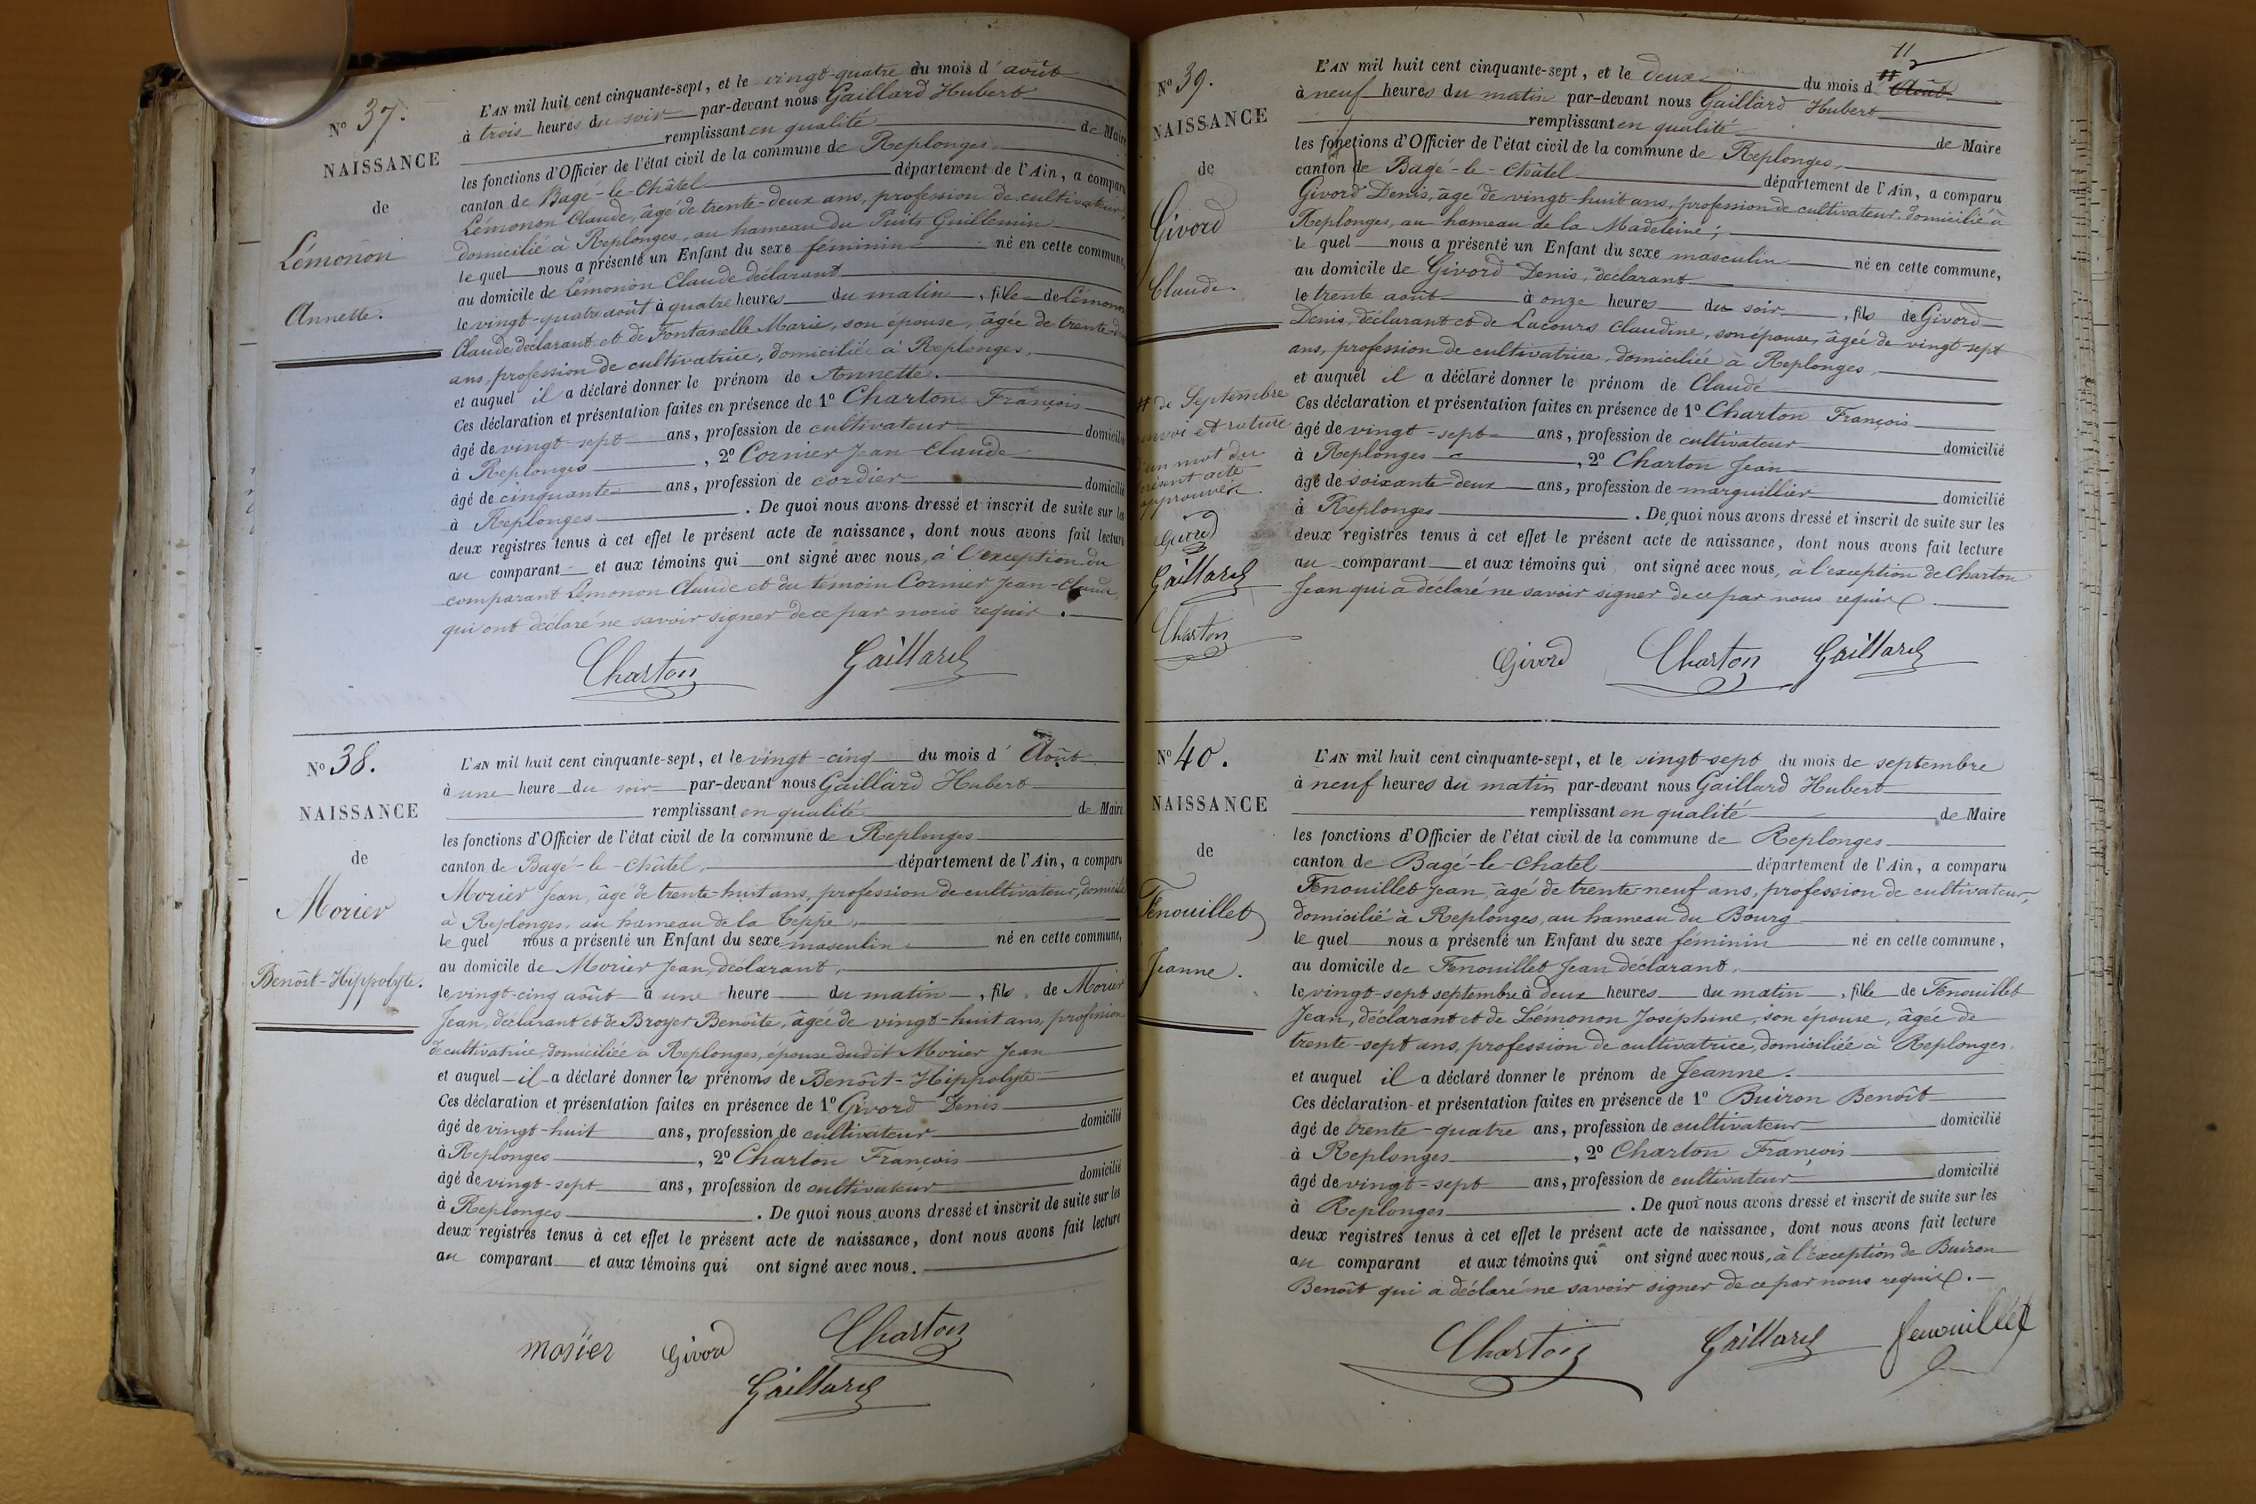 N° 37.
NAISSANCE
de
Lémonon
Annette.
L'AN mil huit cent cinquante-sept, et le vingt-quatre du mois d'août
à trois heures du soir par-devant nous Gaillard Hubert
remplissant en qualité de Maire
les fonctions d'Officier de l'état civil de la commune de Replonges
canton de Bagé-le-Châtel département de l'Ain, a comparu
Lémonon Claude, âgé de trente-deux ans, profession de cultivateur,
domicilié à Replonges, au hameau du Puits Guillemin
le quel nous a présenté un Enfant du sexe féminin né en cette commune,
au domicile de Lémonon Claude déclarant
le vingt-quatre août à quatre heures du matin, fille de Lémonon
Claude, déclarant et de Fontanelle Marie, son épouse, âgée de trente-
ans, profession de cultivatrice, domiciliée à Replonges,
et auquel il a déclaré donner le prénom de Annette.
Ces déclaration et présentation faites en présence de 1° Charton François
âgé de vingt-sept ans, profession de cultivateur domicilié
à Replonges, 2° Cornier Jean Claude
âgé de cinquante ans, profession de cordier domicilié
à Replonges. De quoi nous avons dressé et inscrit de suite sur les
deux registres tenus à cet effet le présent acte de naissance, dont nous avons fait lecture
au comparant et aux témoins qui ont signé avec nous, à l'exception du
comparant Lémonon Claude et du témoin Cornier Jean-Claude,
qui ont déclaré ne savoir signer de ce par nous requis.
Charton Gaillard
N° 38.
NAISSANCE
de
Morier
Benoît-Hippolyte.
L'AN mil huit cent cinquante-sept, et le vingt-cinq du mois d'Août
à une heure du soir par-devant nous Gaillard Hubert
remplissant en qualité de Maire
les fonctions d'Officier de l'état civil de la commune de Replonges
canton de Bagé-le-Châtel, département de l'Ain, a comparu
Morier Jean, âgé de trente-huit ans, profession de cultivateur, domicilié
à Replonges, au hameau de la Teppe,
le quel nous a présenté un Enfant du sexe masculin né en cette commune,
au domicile de Morier Jean, déclarant,
le vingt-cinq août à une heure du matin, fils de Morier
Jean, déclarant et de Broyer Benoîte, âgée de vingt-huit ans, profession
de cultivatrice, domiciliée à Replonges, épouse dudit Morier Jean
et auquel il a déclaré donner les prénoms de Benoît-Hippolyte
Ces déclaration et présentation faites en présence de 1° Givord Denis
âgé de vingt-huit ans, profession de cultivateur domicilié
à Replonges, 2° Charton François
âgé de vingt-sept ans, profession de cultivateur domicilié
à Replonges. De quoi nous avons dressé et inscrit de suite sur les
deux registres tenus à cet effet le présent acte de naissance, dont nous avons fait lecture
au comparant et aux témoins qui ont signé avec nous.
morier Givord Charton
Gaillard
11
N° 39.
NAISSANCE
de
Givord
Claude.
# de Septembre
renvoi et rature
d'un mot du
présent acte
approuvés
Givord
Gaillard
Charton
L'AN mil huit cent cinquante-sept, et le deux du mois d # Août
à neuf heures du matin par-devant nous Gaillard Hubert
remplissant en qualité de Maire
les fonctions d'Officier de l'état civil de la commune de Replonges,
canton de Bagé-le-Châtel département de l'Ain, a comparu
Givord Denis, âgé de vingt-huit ans, profession de cultivateur, domicilié à
Replonges, au hameau de la Madeleine;
le quel nous a présenté un Enfant du sexe masculin né en cette commune,
au domicile de Givord Denis, déclarant
le trente août à onze heures du soir, fils de Givord
Denis, déclarant et de Lacours Claudine, son épouse, âgée de vingt-sept
ans, profession de cultivatrice, domiciliée à Replonges,
et auquel il a déclaré donner le prénom de Claude
Ces déclaration et présentation faites en présence de 1° Charton François
âgé de vingt-sept ans, profession de cultivateur domicilié
à Replonges, 2° Charton Jean
âgé de soixante-deux ans, profession de marguillier domicilié
à Replonges. De quoi nous avons dressé et inscrit de suite sur les
deux registres tenus à cet effet le présent acte de naissance, dont nous avons fait lecture
au comparant et aux témoins qui ont signé avec nous, à l'exception de Charton
Jean qui a déclaré ne savoir signer de ce par nous requis.
Givord Charton Gaillard
N° 40.
NAISSANCE
de
Fenouillet
Jeanne.
L'AN mil huit cent cinquante-sept, et le vingt-sept du mois de septembre
à neuf heures du matin par-devant nous Gaillard Hubert
remplissant en qualité de Maire
les fonctions d'Officier de l'état civil de la commune de Replonges
canton de Bagé-le-Chatel département de l'Ain, a comparu
Fenouillet Jean, âgé de trente-neuf ans, profession de cultivateur,
domicilié à Replonges, au hameau du Bourg
le quel nous a présenté un Enfant du sexe féminin né en cette commune,
au domicile de Fenouillet Jean déclarant,
le vingt-sept septembre à deux heures du matin, fille de Fenouillet
Jean, déclarant et de Lémonon Joséphine, son épouse, âgée de
trente-sept ans, profession de cultivatrice, domiciliée à Replonges.
et auquel il a déclaré donner le prénom de Jeanne.
Ces déclaration et présentation faites en présence de 1° Buiron Benoît
âgé de trente-quatre ans, profession de cultivateur domicilié
à Replonges, 2° Charton François
âgé de vingt-sept ans, profession de cultivateur domicilié
à Replonges. De quoi nous avons dressé et inscrit de suite sur les
deux registres tenus à cet effet le présent acte de naissance, dont nous avons fait lecture
au comparant et aux témoins qui ont signé avec nous, à l'exception de Buiron
Benoît qui a déclaré ne savoir signer de ce par nous requis.
Charton Gaillard fenouillet